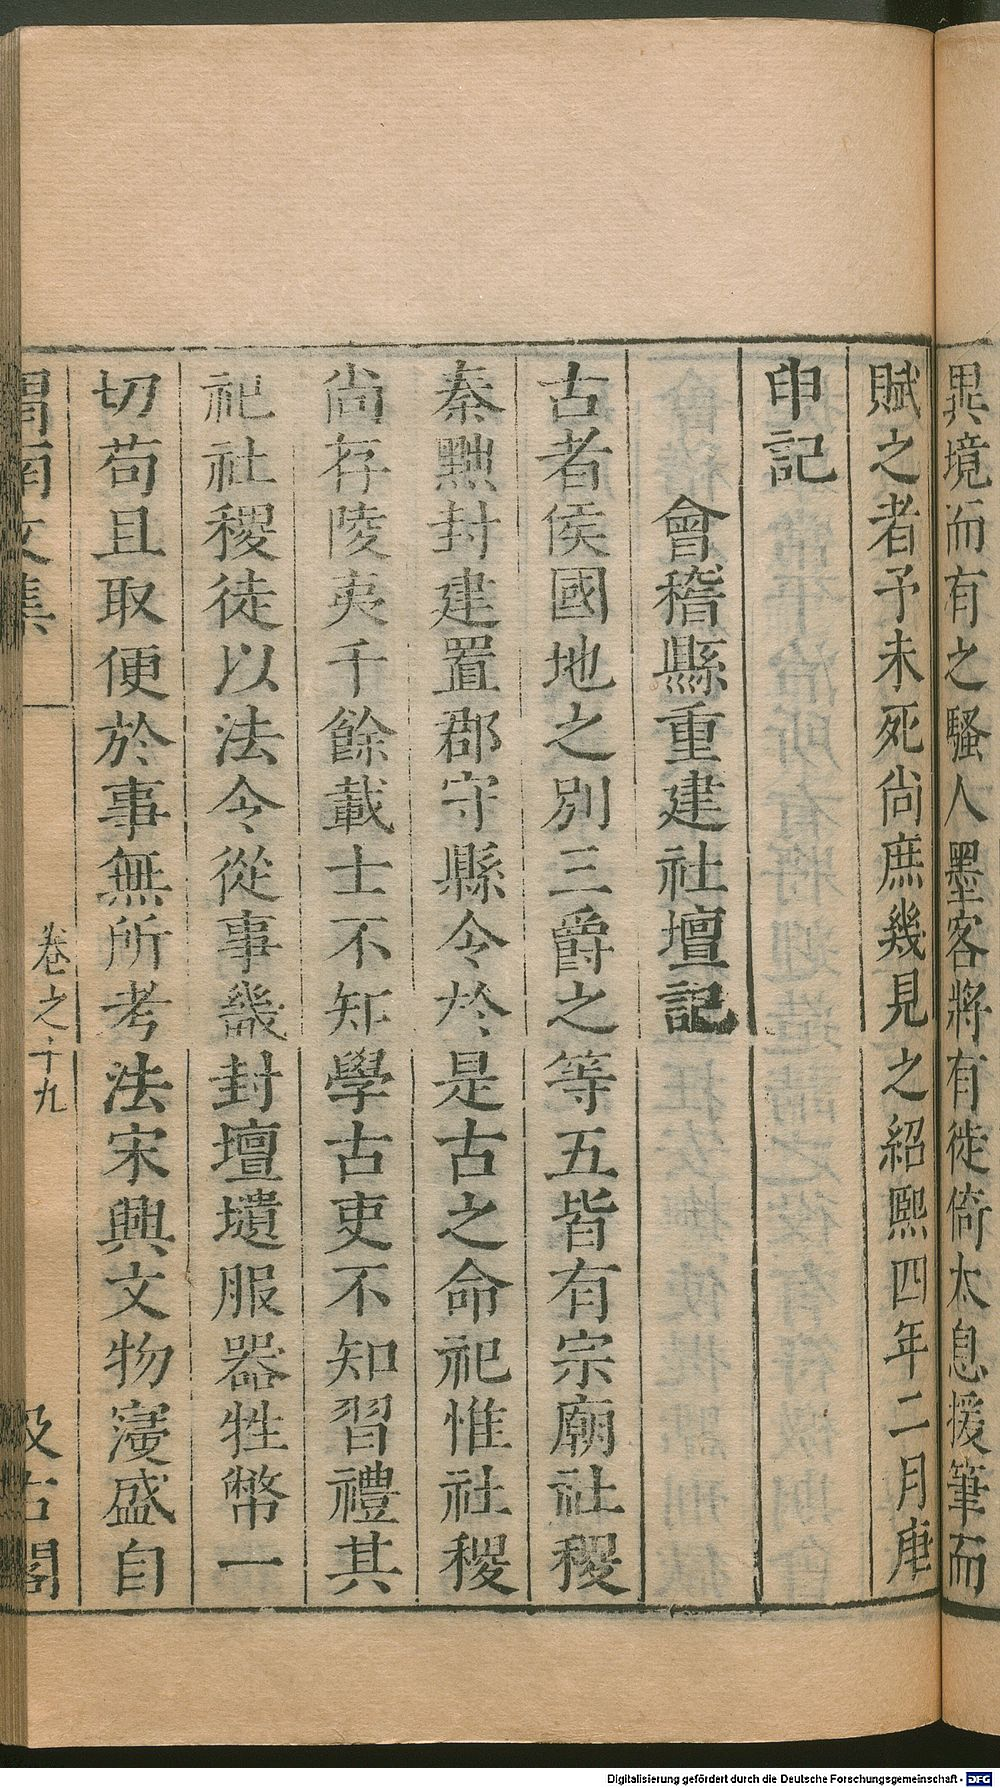 異境而有之騷人墨客將有徙倚太息援筆而
賦之者予未死尙庶幾見之紹熙四年二月庚
申記
會稽縣重建社壇記
古者侯國地之別三爵之等五皆有宗廟社稷
秦黜封建置郡守縣令於是古之命祀惟社稷
尙存陵夷千餘載士不知學古吏不知習禮其
祀社稷徒以法令從事畿封壇壝服器牲幣一
切苟且取便於事無所考法宋興文物寖盛自
渭南文集
卷之十九
汲古閣
Digitalisierung gefördert durch die Deutsche Forschungsgemeinschaft - DFG